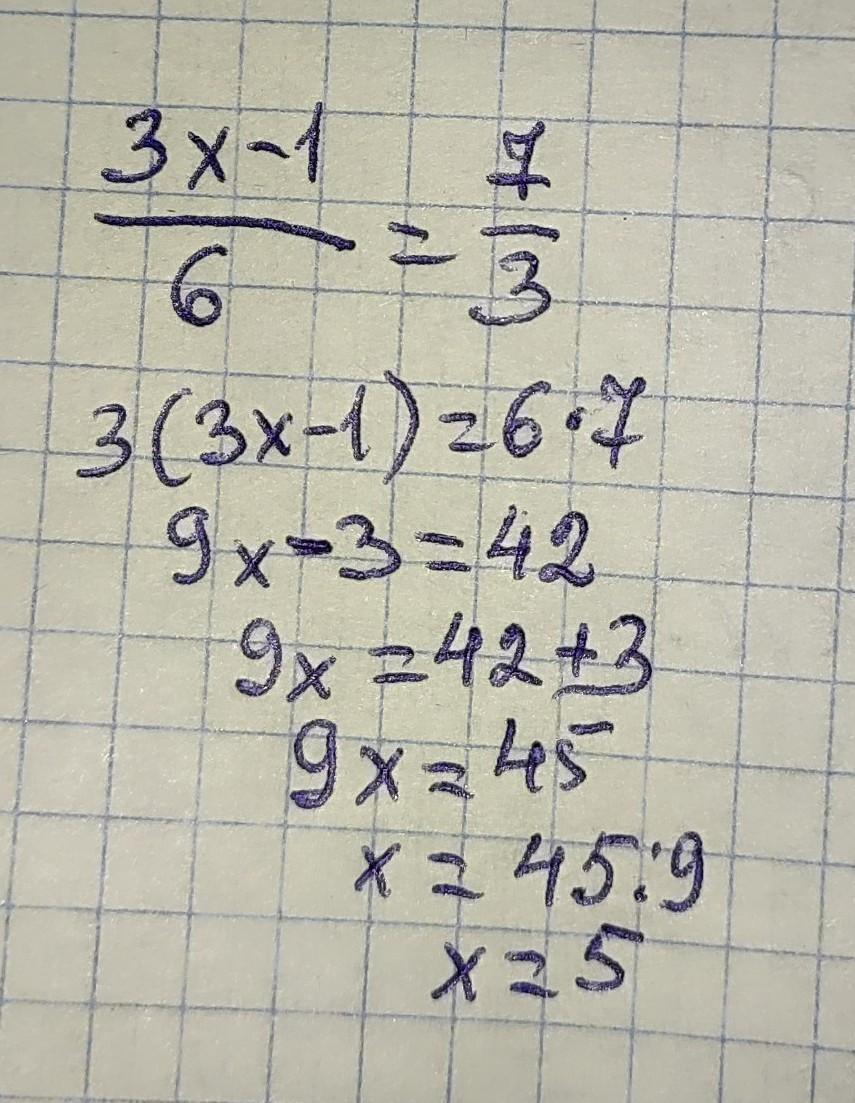 3x-1
6
=
7
3
3(3x-1)=6·7
9x-3=42
9x=42+3
9x=45
x=45:9
x=5